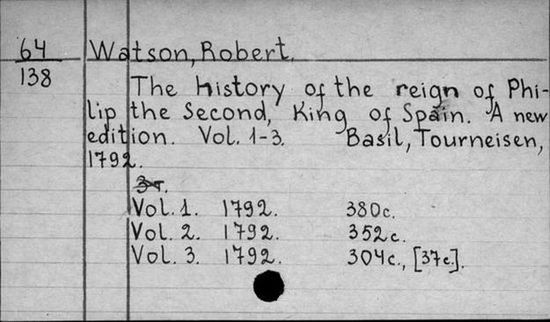 64 Watson, Robert.
138 The history of the reign of Phi-
lip the Second, King of Spain. A new
edition. Vol. 1-3. Basil, Tourneisen,
1792.
Vol. 1. 1792. 380c.
Vol. 2. 1792. 352c.
Vol. 3. 1792. 304c., [37c.].